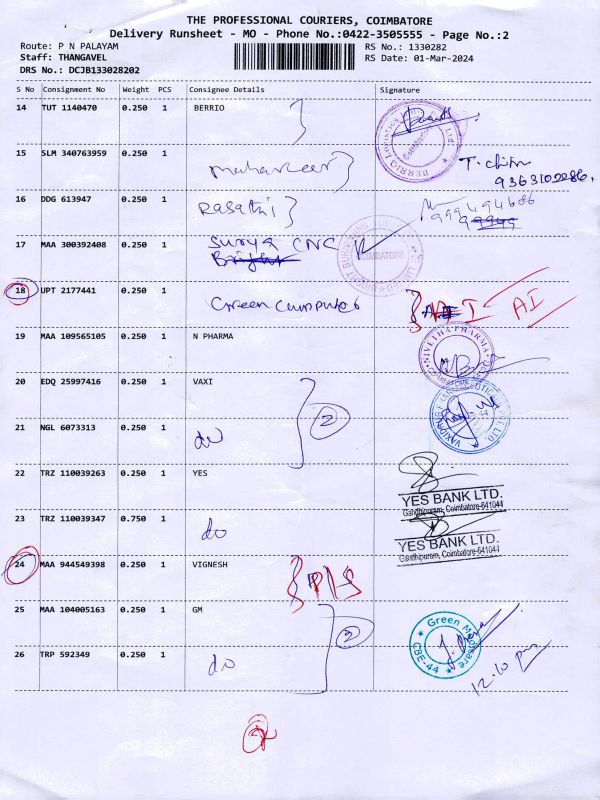 THE PROFESSIONAL COURIERS, COIMBATORE
Delivery Runsheet - MO - Phone No.:0422-3505555 - Page No.:2
Route: P N PALAYAM RS No.: 1330282
Staff: THANGAVEL RS Date: 01-Mar-2024
DRS No.: DCJB133028202
S No Consignment No Weight PCS Consignee Details Signature
14 TUT 1140470 0.250 1 BERRIO
15 SLM 340763959 0.250 1 mahaveer T. Chitra
9363102286.
16 DDG 613947 0.250 1 Rasathi 999494686
17 MAA 300392408 0.250 1 Surya CNC
Bright
COIMBATORE
18 UPT 2177441 0.250 1 Green Computer I AI
19 MAA 109565105 0.250 1 N PHARMA NIVETHA PHARMA
20 EDQ 25997416 0.250 1 VAXI
21 NGL 6073313 0.250 1 do 2
22 TRZ 110039263 0.250 1 YES
YES BANK LTD.
Gandhipuram, Coimbatore-641044
23 TRZ 110039347 0.750 1 do
YES BANK LTD.
Gandhipuram, Coimbatore-641044
24 MAA 944549398 0.250 1 VIGNESH
25 MAA 104005163 0.250 1 GM 2
Green Medicare
CBE-44
26 TRP 592349 0.250 1 do
12.10 pm